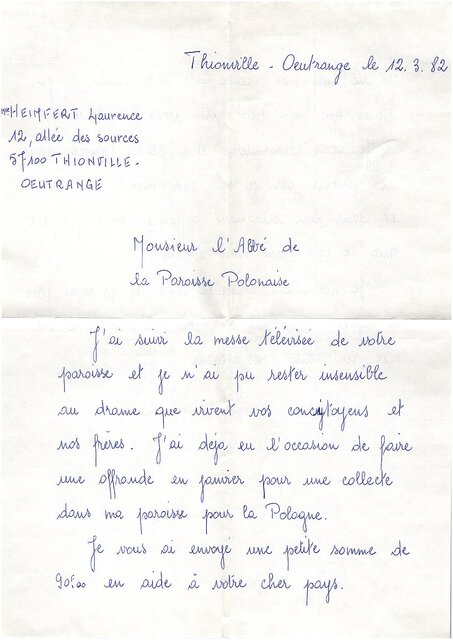 Thionville - Oeutrange le 12.3.82
Mme HEIMFERT Laurence
12, allée des sources
57100 THIONVILLE.
OEUTRANGE
Monsieur l'Abbé de
la Paroisse Polonaise
J'ai suivi la messe télévisée de votre
paroisse et je n'ai pu rester insensible
au drame que vivent vos concitoyens et
nos frères. J'ai déja eu l'occasion de faire
une offrande en janvier pour une collecte
dans ma paroisse pour la Pologne.
Je vous ai envoyé une petite somme de
90F00 en aide à votre cher pays.